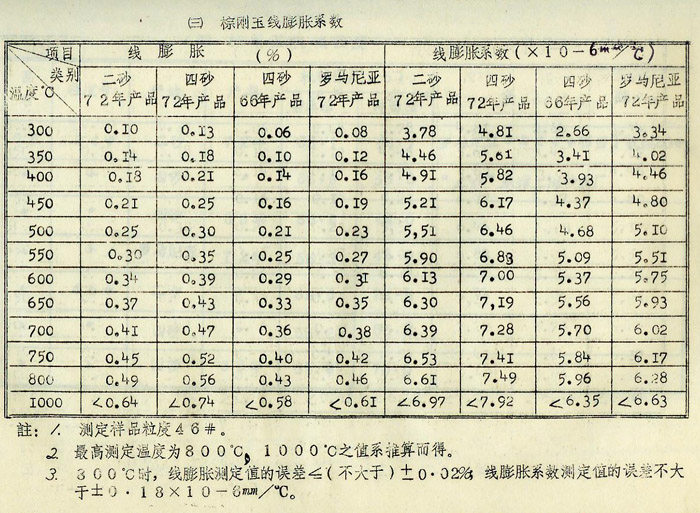 (三) 棕刚玉线膨胀系数
项目 线膨胀 (%) 线膨胀系数(×10-6mm/℃)
类别 二砂 四砂 四砂 罗马尼亚 二砂 四砂 四砂 罗马尼亚
温度℃ 72年产品 72年产品 66年产品 72年产品 72年产品 72年产品 66年产品 72年产品
300 0.10 0.13 0.06 0.08 3.78 4.81 2.66 3.34
350 0.14 0.18 0.10 0.12 4.46 5.61 3.41 4.02
400 0.18 0.21 0.14 0.16 4.91 5.82 3.93 4.46
450 0.21 0.25 0.16 0.19 5.21 6.17 4.37 4.80
500 0.25 0.30 0.21 0.23 5,51 6.46 4.68 5.10
550 0.30 0.35 0.25 0.27 5.90 6.83 5.09 5.51
600 0.34 0.39 0.29 0.31 6.13 7.00 5.37 5.75
650 0.37 0.43 0.33 0.35 6.30 7,19 5.56 5.93
700 0.41 0.47 0.36 0.38 6.39 7.28 5.70 6.02
750 0.45 0.52 0.40 0.42 6.53 7.41 5.84 6.17
800 0.49 0.56 0.43 0.46 6.61 7.49 5.96 6.28
1000 <0.64 <0.74 <0.58 <0.61 <6.97 <7.92 <6.35 <6.63
註: 1. 测定样品粒度46#。
2. 最高测定温度为800℃, 1000℃之值系推算而得。
3. 300℃时, 线膨胀测定值的误差≤(不大于)±0.02%, 线膨胀系数测定值的误差不大
于±0.18×10-6mm/℃。